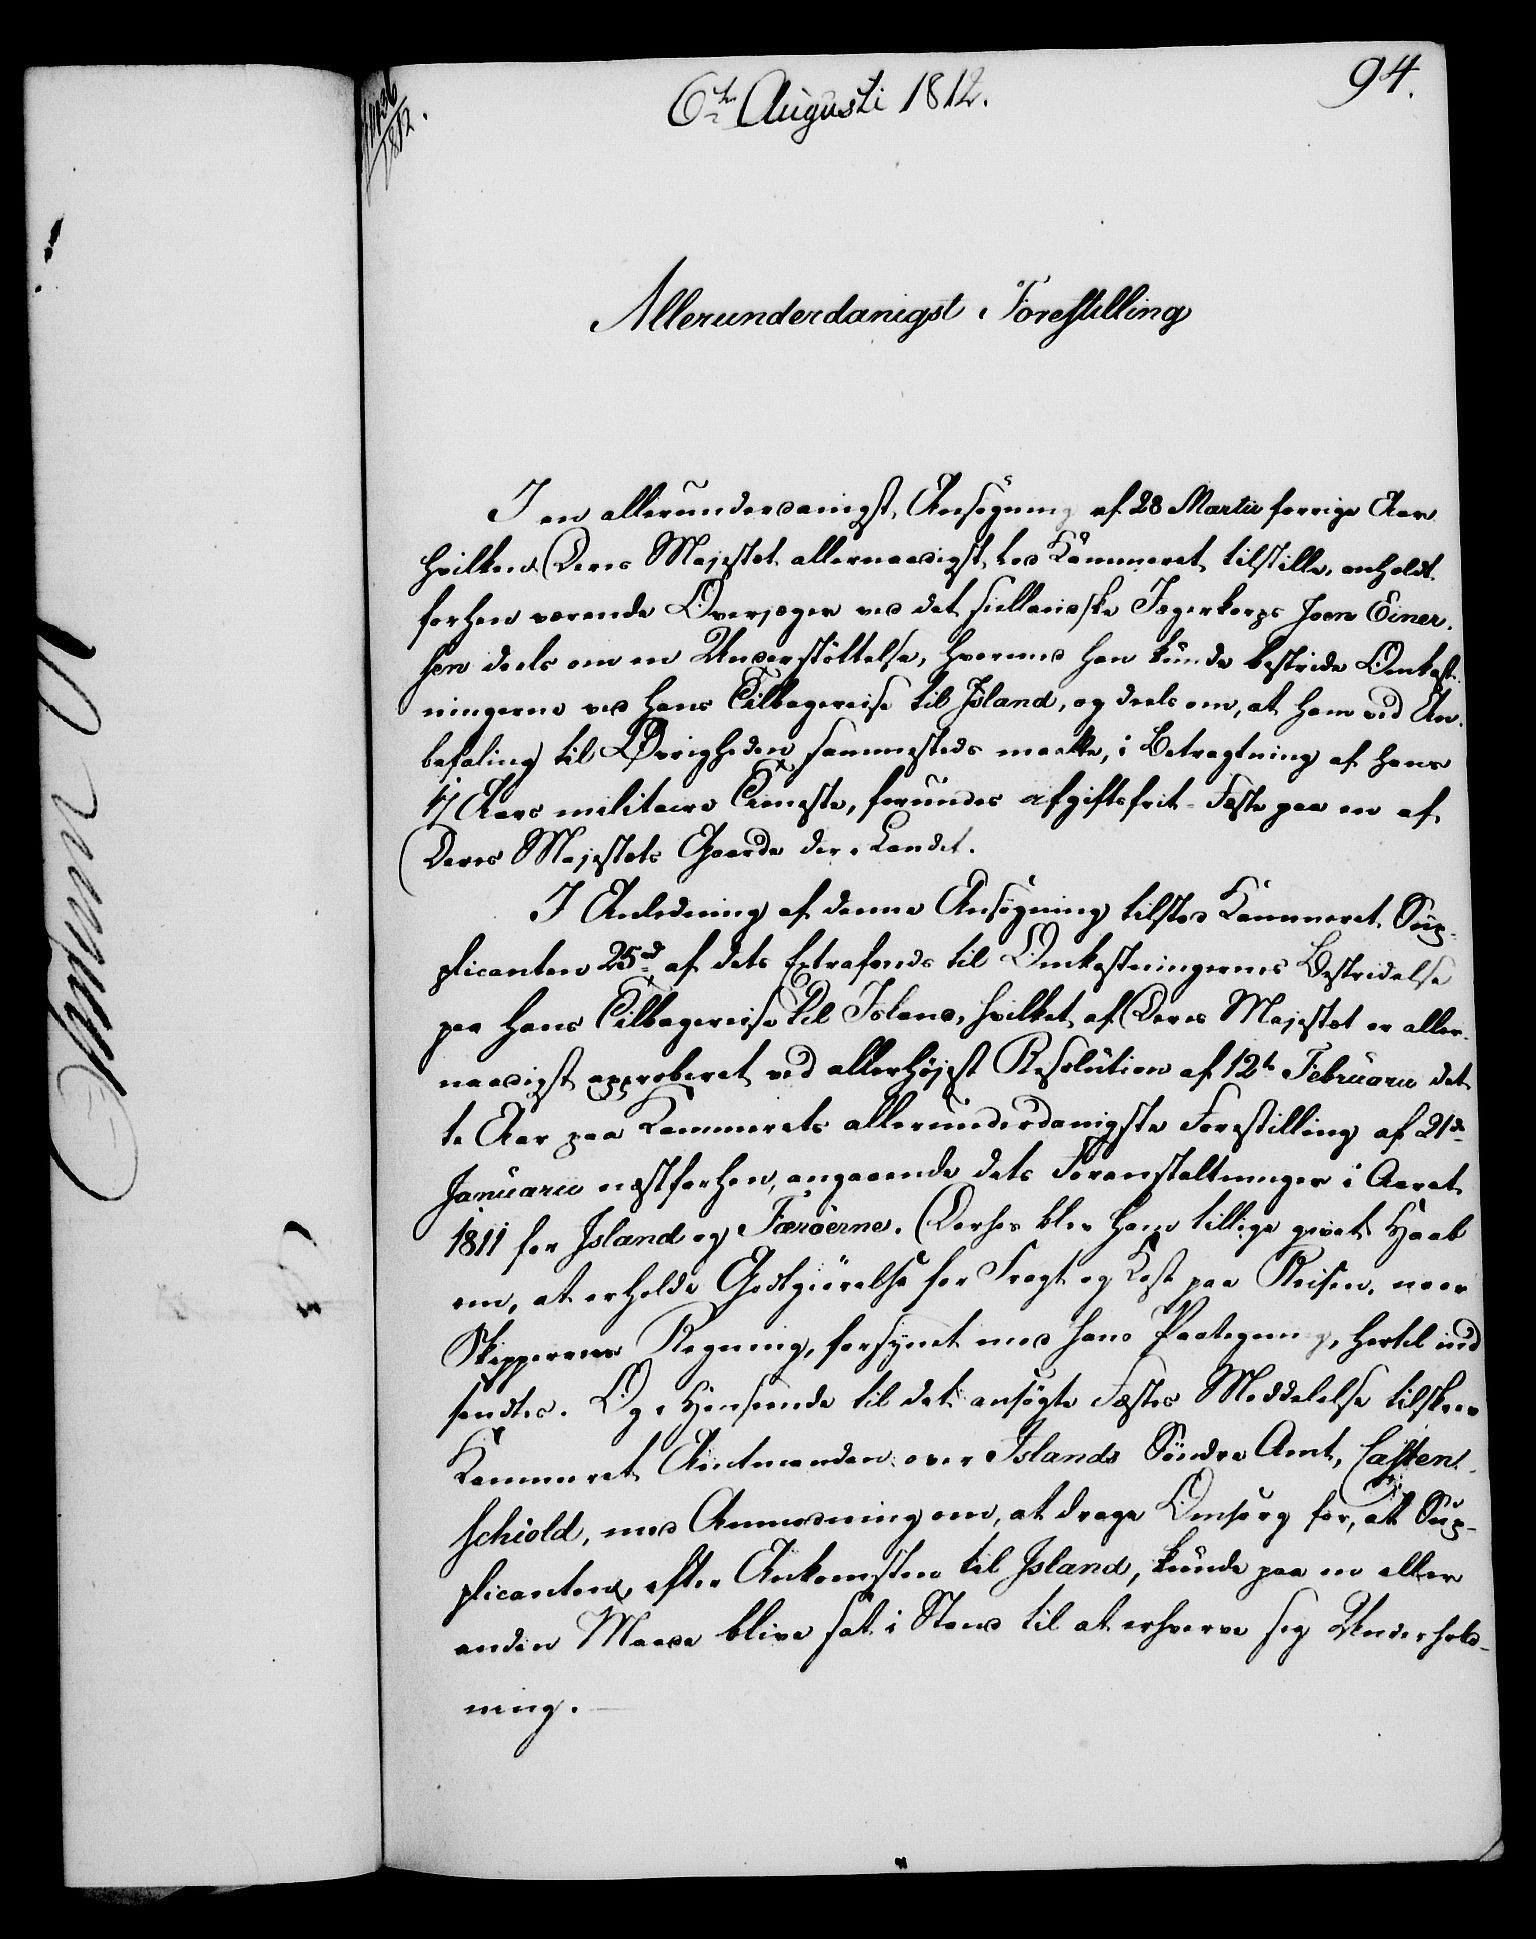 6te Augusti 1812.
94.
Allerunderdanigst Forestilling
I en allerunderdanigst Ansøgning af 28 Martii forrige Aar
hvilken Deres Majestet allernaadigst lod Kammeret tilstille, anholdt
forhen værende Overjæger ved det siellandske Jægerkorps Joen Einer-
sen deels om en Understøttelse, hvormed han kunde bestride Omkost-
ningerne ved hans Tilbagereise til Jsland, og deels om, at ham ved An-
befaling til Øvrigheden sammesteds maatte, i Betragtning af hans
17 Aars militaire Tieneste, forundes afgiftsfrit Fæste paa en af
Deres Majestets Gaarde der i Landet.
I Anledning af denne Ansøgning tilstod Kammeret Sup-
plicanten 25rd af dets Extrafonds til Omkostningernes Bestridelse
paa hans Tilbagereise til Island, hvilket af Deres Majestet er aller-
naadigst approberet ved allerhøjest Resolution af 12te Februarii det-
te Aar paa Kammerets allerunderdanigste Forestilling af 21de
Januarii næstforhen, angaaende dets Foranstaltninger i Aaret
1811 for Jsland og Færøerne. Derhos blev ham tillige givet Haab
om, at erholde Godtgiørelse for Fragt og Kost paa Reisen, naar
Skipperens Regning, forsynet med hans Paategning, hertil ind-
sendtes. Og i Henseende til det ansøgte Fæstes Meddelelse tilskrev
Kammeret Amtmanden over Islands Søndre Amt, Casten-
schiold, med Anmodning om, at drage Omsorg for, at Sup-
plicanten, efter Ankomsten til Jsland, kunde paa en eller
anden Maade blive sat i Stand til at erhverve sig Underhold-
ning.